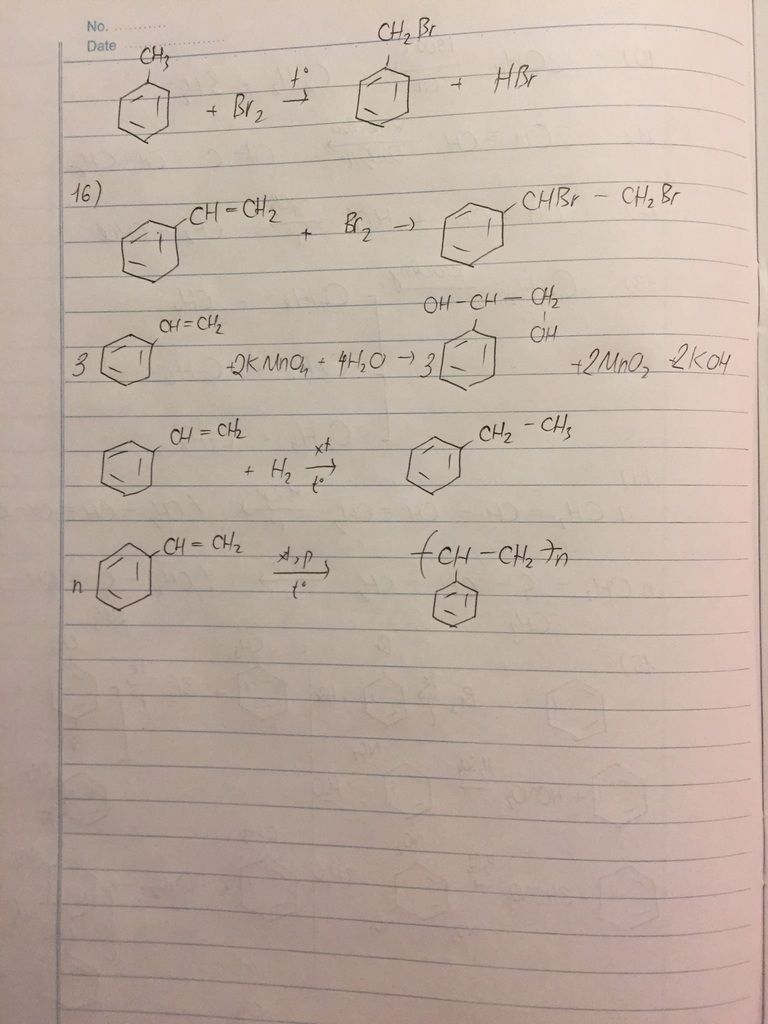 No. ............
Date ............
CH₃ + Br₂ t° → CH₂Br + HBr
16)
CH = CH₂ + Br₂ → CHBr - CH₂Br
3 CH = CH₂ + 2KMnO₄ + 4H₂O → 3 OH - CH - CH₂ - OH + 2MnO₂ 2KOH
CH = CH₂ + H₂ xt t° → CH₂ - CH₃
n CH = CH₂ xt, p t° → ( CH - CH₂ )n